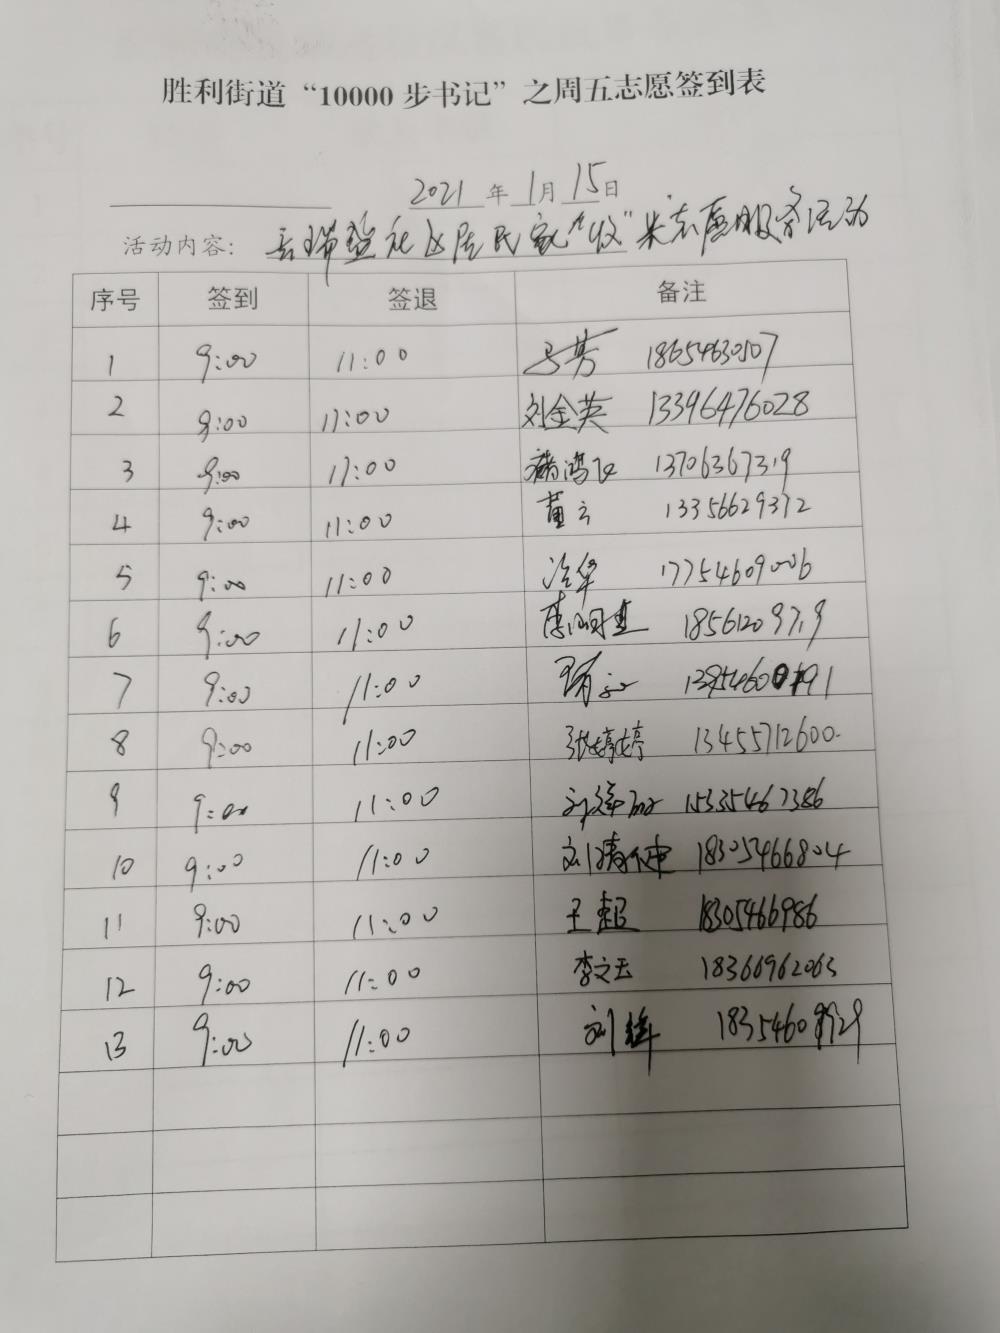 胜利街道“10000步书记”之周五志愿签到表
2021年1月15日
活动内容: 社区居民家“收”来志愿服务活动
序号 签到 签退 备注
1 9:00 11:00 马芳 18654630507
2 9:00 11:00 刘金英 13396476028
3 9:00 11:00 鸿飞 13706367319
4 9:00 11:00 董云 13356629372
5 9:00 11:00 冷华 17754609006
6 9:00 11:00 18561209719
7 9:00 11:00
8 9:00 11:00 张婷婷 13455712600
9 9:00 11:00 15335467386
10 9:00 11:00 18305466804
11 9:00 11:00 王超 18305466986
12 9:00 11:00 李文玉 18366962063
13 9:00 11:00 刘